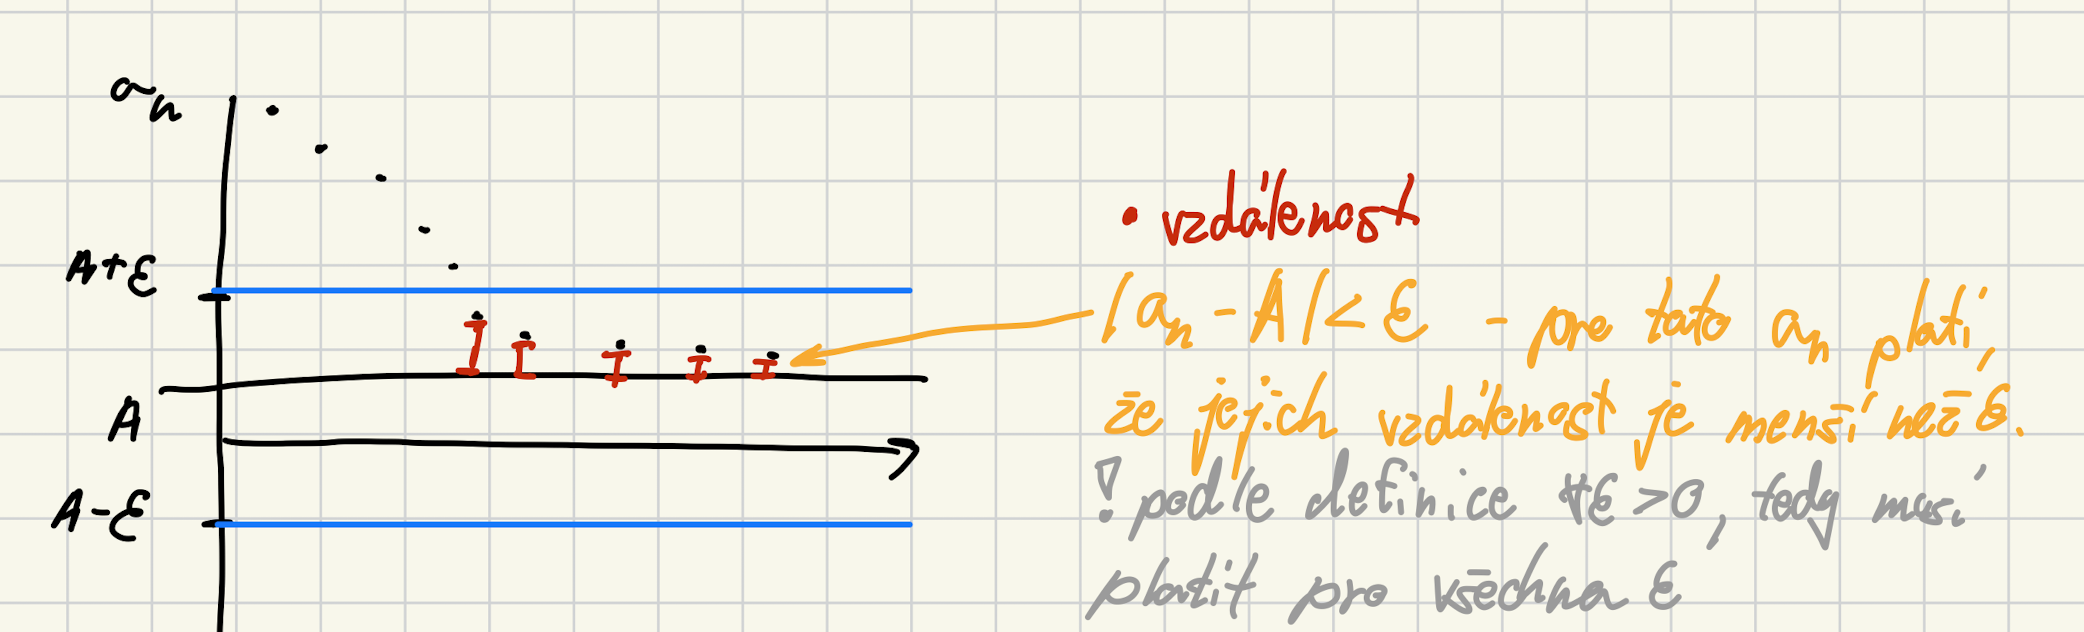 aₙ
A+ε
A
A-ε
• vzdálenost
|aₙ - A| < ε - pro tato aₙ platí,
že jejich vzdálenost je menší než ε.
! podle definice ∀ε > 0, tedy musí
platit pro všechna ε